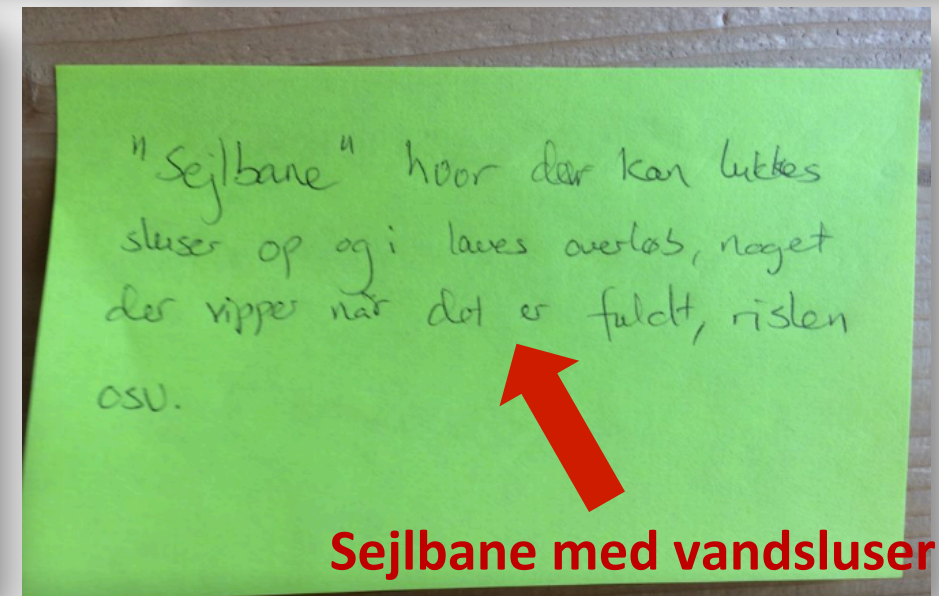 "Sejlbane" hvor der kan lukkes
sluser op og i laves overløb, noget
der vipper når det er fuldt, rislen
osv.
Sejlbane med vandsluser